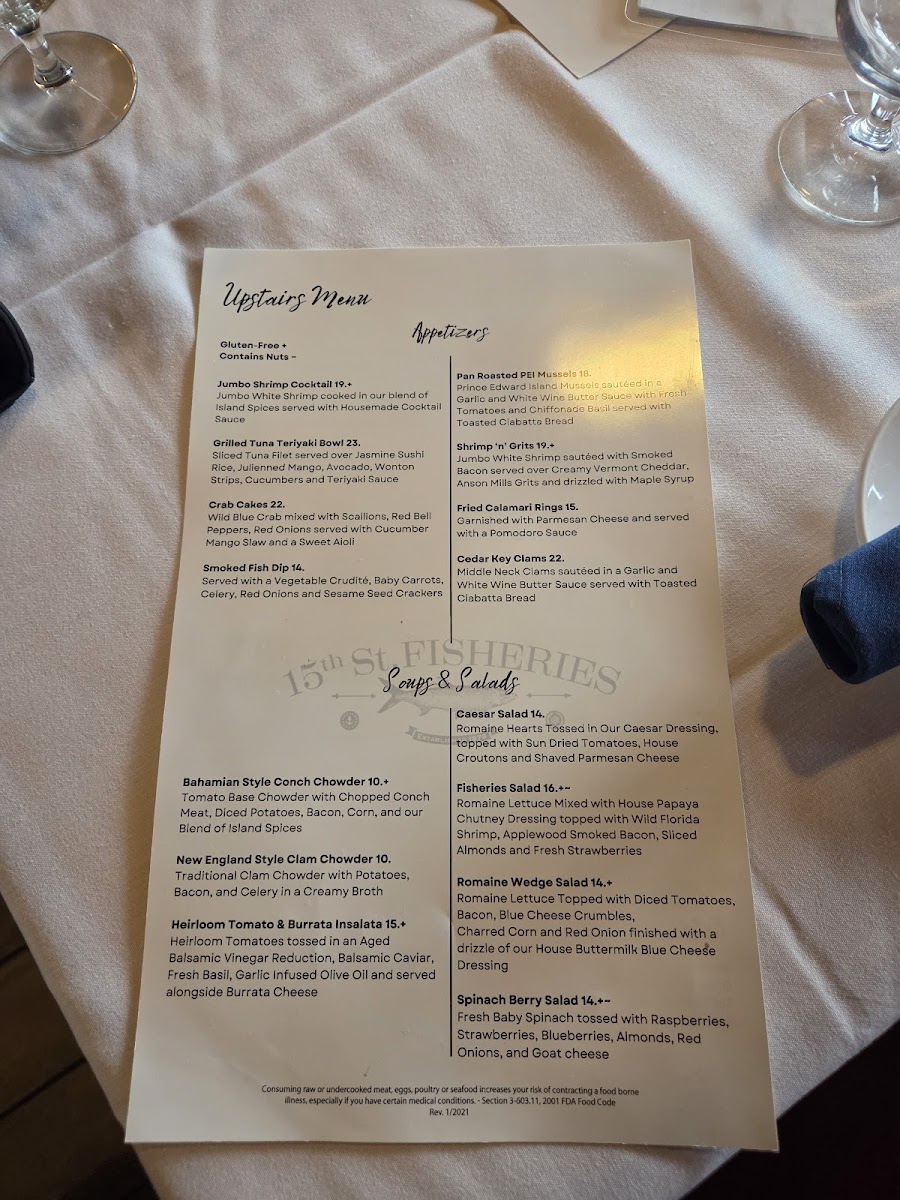 Upstairs Menu
Appetizers
Gluten-Free +
Contains Nuts ~
Jumbo Shrimp Cocktail 19.+
Jumbo White Shrimp cooked in our blend of
Island Spices served with Housemade Cocktail
Sauce
Grilled Tuna Teriyaki Bowl 23.
Sliced Tuna Filet served over Jasmine Sushi
Rice, Julienned Mango, Avocado, Wonton
Strips, Cucumbers and Teriyaki Sauce
Crab Cakes 22.
Wild Blue Crab mixed with Scallions, Red Bell
Peppers, Red Onions served with Cucumber
Mango Slaw and a Sweet Aioli
Smoked Fish Dip 14.
Served with a Vegetable Crudité, Baby Carrots,
Celery, Red Onions and Sesame Seed Crackers
Pan Roasted PEI Mussels 18.
Prince Edward Island Mussels sautéed in a
Garlic and White Wine Butter Sauce with Fresh
Tomatoes and Chiffonade Basil served with
Toasted Ciabatta Bread
Shrimp 'n' Grits 19.+
Jumbo White Shrimp sautéed with Smoked
Bacon served over Creamy Vermont Cheddar,
Anson Mills Grits and drizzled with Maple Syrup
Fried Calamari Rings 15.
Garnished with Parmesan Cheese and served
with a Pomodoro Sauce
Cedar Key Clams 22.
Middle Neck Clams sautéed in a Garlic and
White Wine Butter Sauce served with Toasted
Ciabatta Bread
15th St. FISHERIES
Soups & Salads
Bahamian Style Conch Chowder 10.+
Tomato Base Chowder with Chopped Conch
Meat, Diced Potatoes, Bacon, Corn, and our
Blend of Island Spices
New England Style Clam Chowder 10.
Traditional Clam Chowder with Potatoes,
Bacon, and Celery in a Creamy Broth
Heirloom Tomato & Burrata Insalata 15.+
Heirloom Tomatoes tossed in an Aged
Balsamic Vinegar Reduction, Balsamic Caviar,
Fresh Basil, Garlic Infused Olive Oil and served
alongside Burrata Cheese
Caesar Salad 14.
Romaine Hearts Tossed in Our Caesar Dressing,
topped with Sun Dried Tomatoes, House
Croutons and Shaved Parmesan Cheese
Fisheries Salad 16.+~
Romaine Lettuce Mixed with House Papaya
Chutney Dressing topped with Wild Florida
Shrimp, Applewood Smoked Bacon, Sliced
Almonds and Fresh Strawberries
Romaine Wedge Salad 14.+
Romaine Lettuce Topped with Diced Tomatoes,
Bacon, Blue Cheese Crumbles,
Charred Corn and Red Onion finished with a
drizzle of our House Buttermilk Blue Cheese
Dressing
Spinach Berry Salad 14.+~
Fresh Baby Spinach tossed with Raspberries,
Strawberries, Blueberries, Almonds, Red
Onions, and Goat cheese
Consuming raw or undercooked meat, eggs, poultry or seafood increases your risk of contracting a food borne
illness, especially if you have certain medical conditions. - Section 3-603.11, 2001 FDA Food Code
Rev. 1/2021